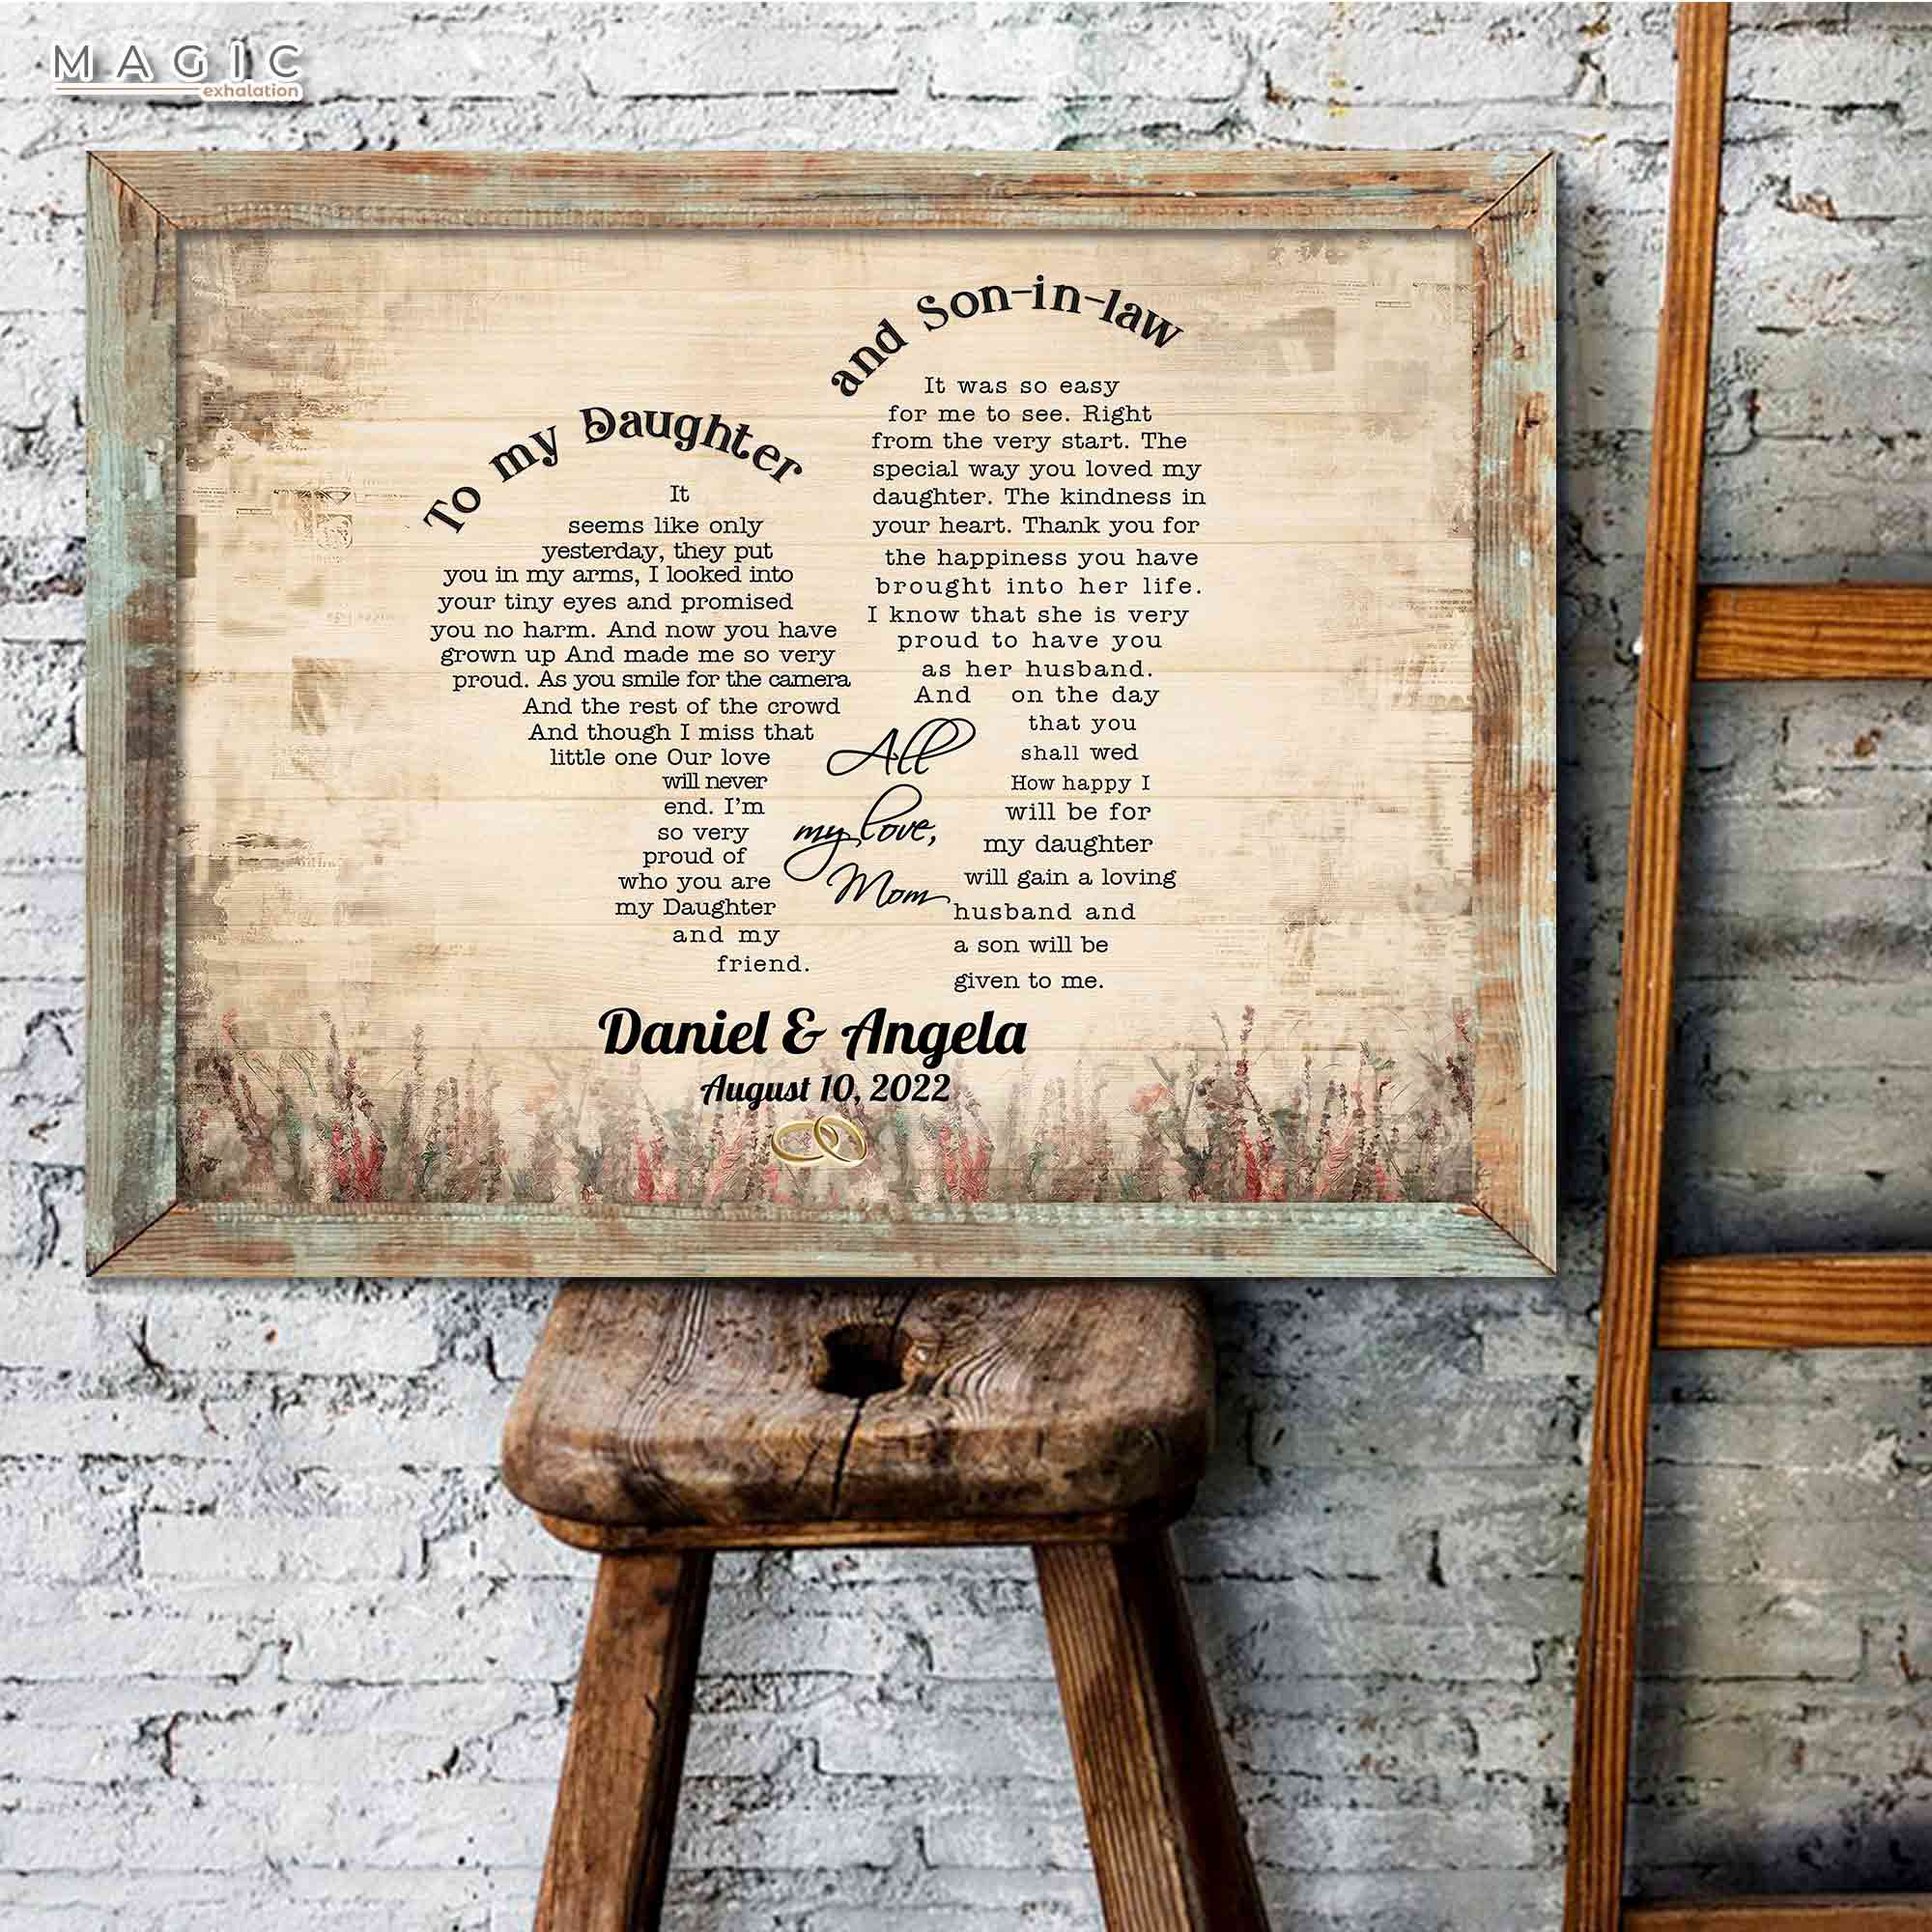 MAGIC
exhalation
To my Daughter
It
seems like only
yesterday, they put
you in my arms, I looked into
your tiny eyes and promised
you no harm. And now you have
grown up And made me so very
proud. As you smile for the camera
And the rest of the crowd
And though I miss that
little one Our love
will never
end. I'm
so very
proud of
who you are
my Daughter
and my
friend.
and Son-in-law
It was so easy
for me to see. Right
from the very start. The
special way you loved my
daughter. The kindness in
your heart. Thank you for
the happiness you have
brought into her life.
I know that she is very
proud to have you
as her husband.
And on the day
that you
shall wed
How happy I
will be for
my daughter
will gain a loving
husband and
a son will be
given to me.
All
my love,
Mom
Daniel & Angela
August 10, 2022